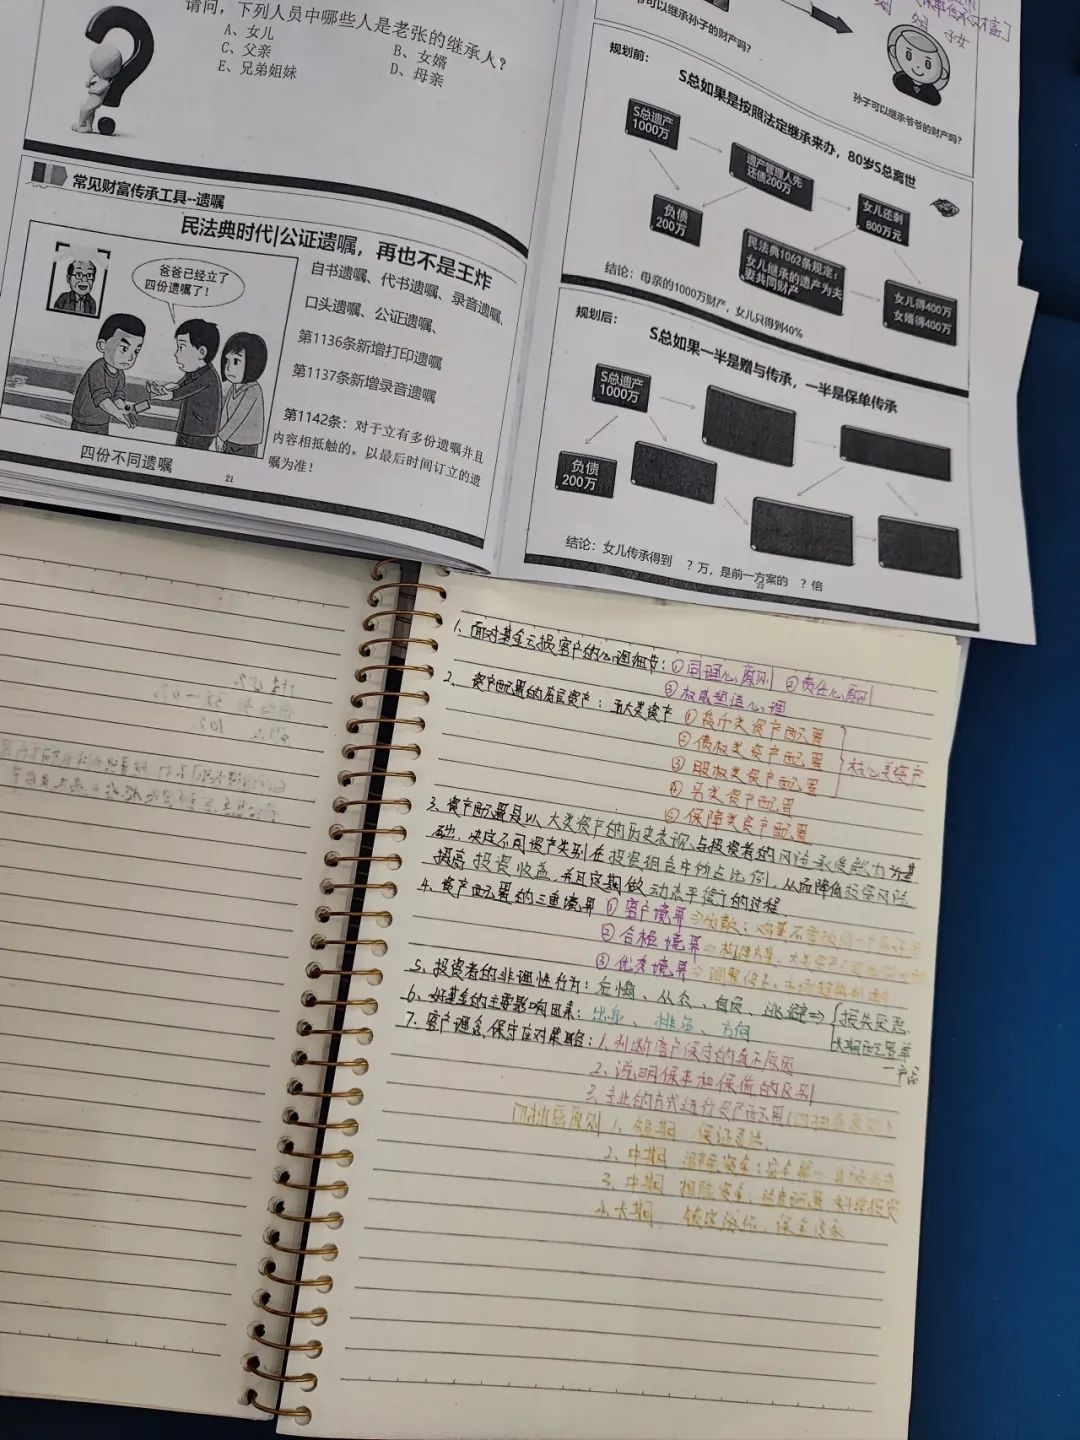 请问，下列人员中哪些人是老张的继承人？
A、女儿
B、女婿
C、父亲
D、母亲
E、兄弟姐妹
常见财富传承工具--遗嘱
民法典时代|公证遗嘱，再也不是王炸
爸爸已经立了
四份遗嘱了！
自书遗嘱、代书遗嘱、录音遗嘱、
口头遗嘱、公证遗嘱、
第1136条新增打印遗嘱
第1137条新增录音遗嘱
第1142条：对于立有多份遗嘱并且
内容相抵触的，以最后时间订立的遗
嘱为准！
四份不同遗嘱
21
可以继承孙子的财产吗？
子女
孙子可以继承爷爷的财产吗？
规划前：
S总如果是按照法定继承来办，80岁S总离世
S总遗产
1000万
遗产管理人先
还债200万
女儿还剩
800万元
负债
200万
民法典1062条规定：
女儿继承的遗产为夫
妻共同财产
女儿得400万
女婿得400万
结论：母亲的1000万财产，女儿只得到40%
规划后：
S总如果一半是赠与传承，一半是保单传承
S总遗产
1000万
负债
200万
结论：女儿传承得到 ？万，是前一方案的 ？倍
22
1、面对基金亏损客户的心理细节：①同理心原则 ②责任心原则
③权威塑造心理
2、资产配置的底层资产：五大类资产 ①货币类资产配置
②债权类资产配置
③股权类资产配置
④另类资产配置
⑤保障类资产配置
核心类资产
3、资产配置是以大类资产的历史表现与投资者的风险承受能力为基
础，决定不同资产类别在投资组合中所占比例，从而降低投资风险
提高投资收益，并且定期做动态平衡的过程。
4、资产配置的三重境界 ①客户境界⇒分散：鸡蛋不要放同一个篮子里
②合格境界⇒
③优秀境界⇒
5、投资者的非理性行为：后悔、从众、自负、逃避⇒ 损失厌恶
6、好基金的主要影响因素：出身、排名、方向
7、客户理念保守应对策略：1、判断客户保守的真正原因
2、说明保本和保值的区别
3、专业的方式进行资产配置
原则 1、短期 保证灵活
2、中期
3、中期
4、长期